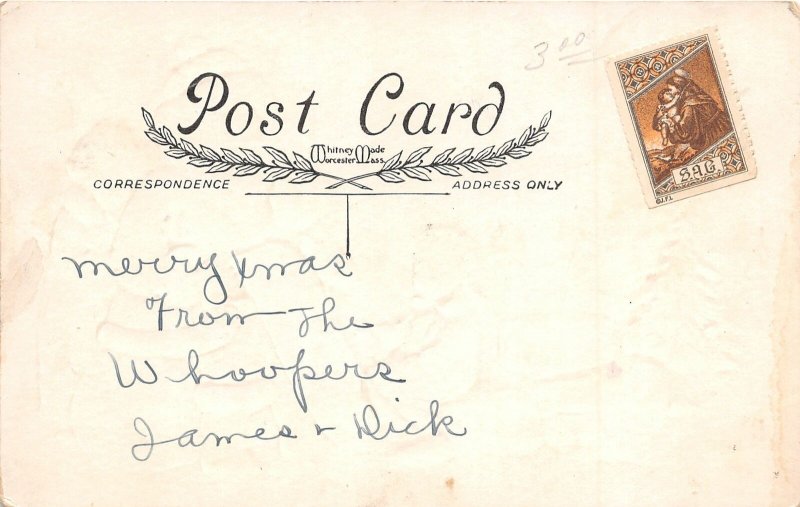 3.00
Post Card
Whitney Made
Worcester Mass.
CORRESPONDENCE
ADDRESS ONLY
S.A.G.
merry xmas
From The
Whoopers
James + Dick